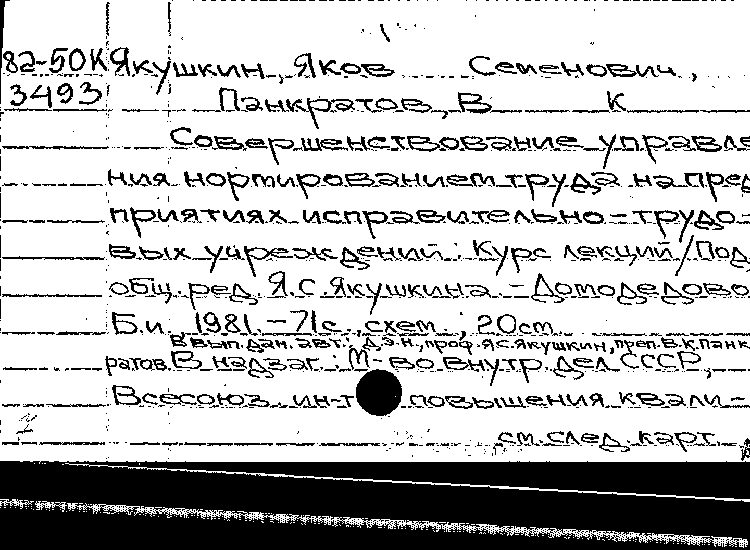 82-50К Якушкин, Яков Семенович,
3493 Панкратов, В К
Совершенствование управле
ния нормированием труда на пред
приятиях исправительно-трудо-
вых учреждений: Курс лекций/Под
общ. ред. Я.С.Якушкина. - Домодедово
Б.и., 1981. - 71с., схем.; 20см.
В вып. дан. авт.: д.э.н., проф. Я.С.Якушкин, преп. В.К.Панк
ратов. В надзаг.: М-во внутр. дел СССР,
Всесоюз. ин-т повышения квали-
см. след. карт.